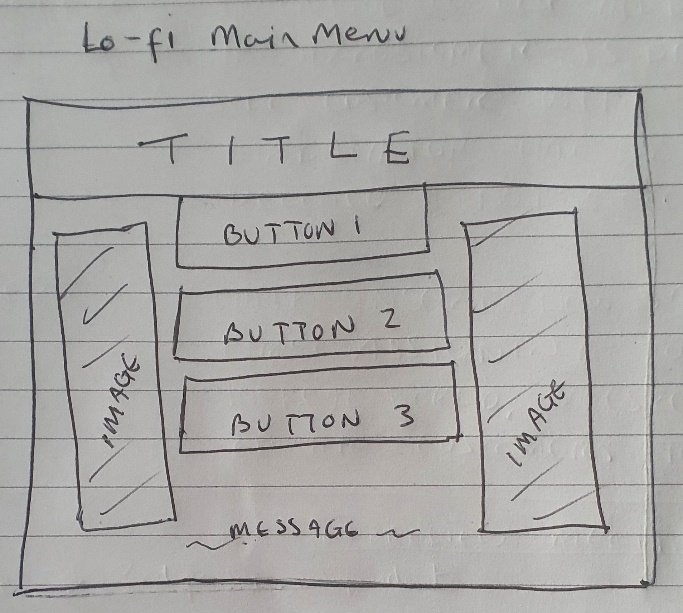 Lo-fi Main Menu
TITLE
BUTTON 1
BUTTON 2
BUTTON 3
IMAGE
IMAGE
~ MESSAGE ~